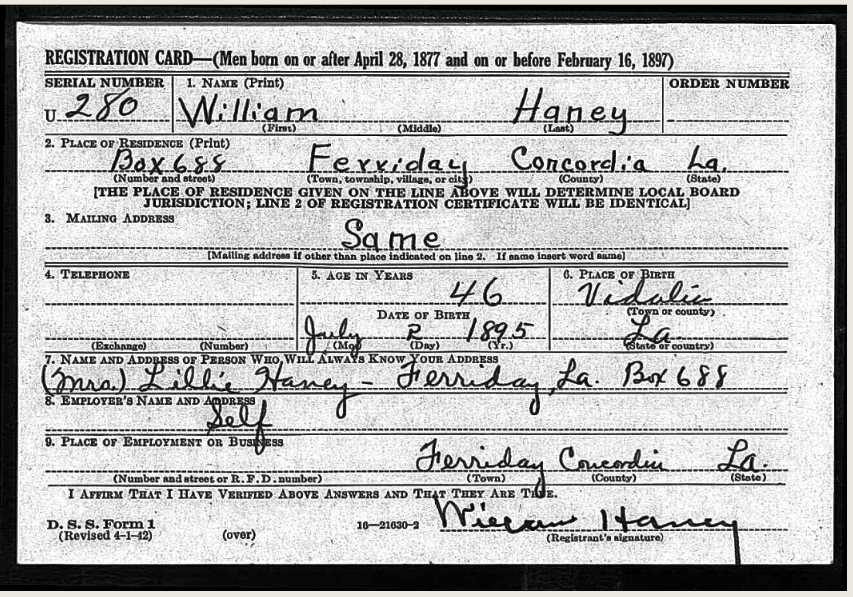 REGISTRATION CARD—(Men born on or after April 28, 1877 and on or before February 16, 1897)
SERIAL NUMBER 1. NAME (Print) ORDER NUMBER
U 280 William Haney
(First) (Middle) (Last)
2. PLACE OF RESIDENCE (Print)
Box 688 Ferriday Concordia La.
(Number and street) (Town, township, village, or city) (County) (State)
[THE PLACE OF RESIDENCE GIVEN ON THE LINE ABOVE WILL DETERMINE LOCAL BOARD
JURISDICTION; LINE 2 OF REGISTRATION CERTIFICATE WILL BE IDENTICAL]
3. MAILING ADDRESS
Same
[Mailing address if other than place indicated on line 2. If same insert word same]
4. TELEPHONE 5. AGE IN YEARS 6. PLACE OF BIRTH
46 Vidalia
DATE OF BIRTH (Town or county)
July 2 1895 La.
(Exchange) (Number) (Mo.) (Day) (Yr.) (State or country)
7. NAME AND ADDRESS OF PERSON WHO WILL ALWAYS KNOW YOUR ADDRESS
(Mrs.) Lillie Haney – Ferriday, La. Box 688
8. EMPLOYER'S NAME AND ADDRESS
Self
9. PLACE OF EMPLOYMENT OR BUSINESS
Ferriday Concordia La.
(Number and street or R. F. D. number) (Town) (County) (State)
I AFFIRM THAT I HAVE VERIFIED ABOVE ANSWERS AND THAT THEY ARE TRUE.
D. S. S. Form 1 16—21630-2 William Haney
(Revised 4-1-42) (over) (Registrant's signature)